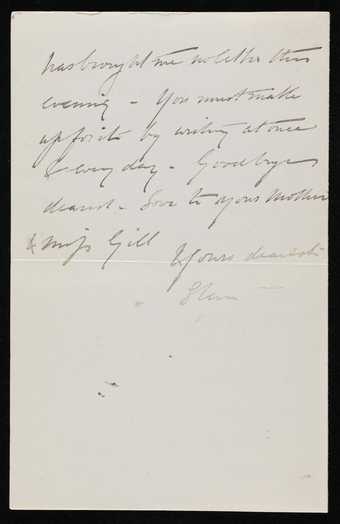 has brought me no letter this
evening – You must make
up for it by writing at once
& every day – Goodbye
dearest – Love to your Mother
& Miss Gill
Yours dearest